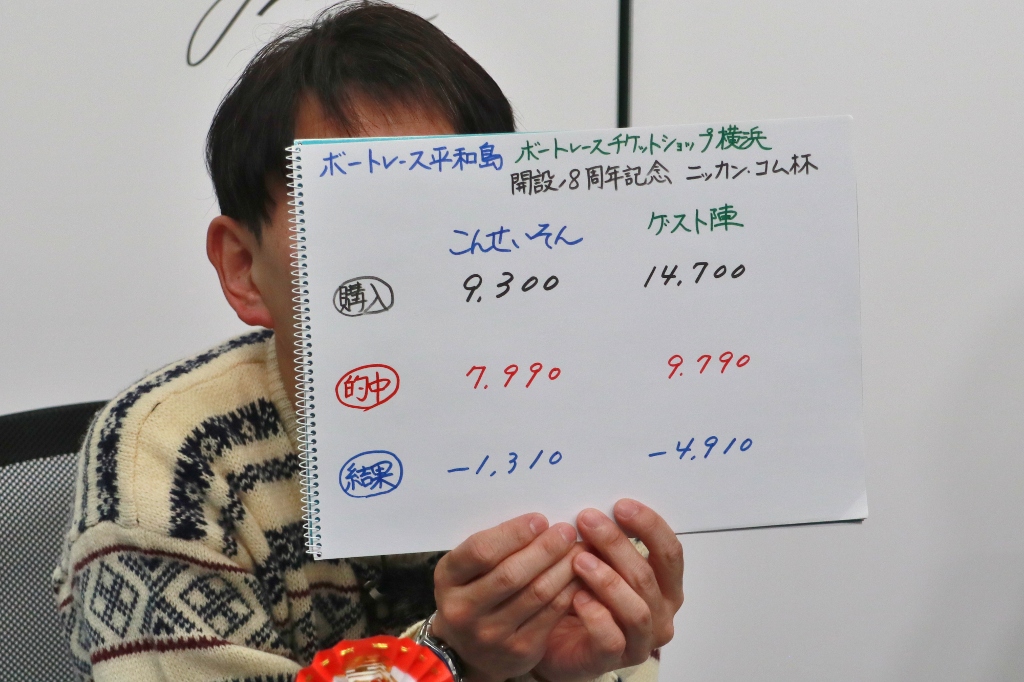 ボートレース平和島 ボートレースチケットショップ横浜
開設18周年記念 ニッカン・コム杯
こんせいそん ゲスト陣
購入 9,300 14,700
的中 7,990 9,790
結果 -1,310 -4,910